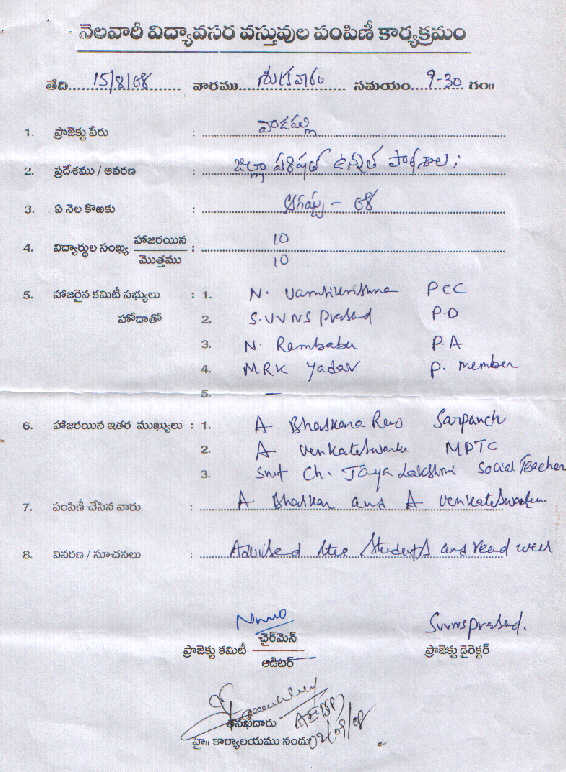 నెలవారీ విద్యావసర వస్తువుల పంపిణీ కార్యక్రమం
తేది 15/8/08 వారము శుక్రవారం సమయం 9-30 గం॥
1. ప్రాజెక్టు పేరు :
2. ప్రదేశము / ఆవరణ : జిల్లా పరిషత్ ఉన్నత పాఠశాల :
3. ఏ నెల కొఱకు : ఆగష్టు - 08
4. విద్యార్థుల సంఖ్య హాజరయిన : 10
మొత్తము 10
5. హాజరైన కమిటీ సభ్యులు : 1. N. Vamsikrishna PCC
హోదాతో 2. S.VVNS Prasad P.D
3. N. Rambabu P.A
4. MRK Yadav P. member
5. —
6. హాజరయిన ఇతర ముఖ్యులు : 1. A Bhaskara Rao Sarpanch
2. A Venkateswarlu MPTC
3. Smt Ch. Jaya Lakshmi Social Teacher
7. పంపిణీ చేసిన వారు : A Bhaskar and A Venkateswarlu
8. వివరణ / సూచనలు : Advised the Students and read well
ఛైర్మెన్ Svvnsprasad.
ప్రాజెక్టు కమిటీ ప్రాజెక్టు డైరెక్టర్
ఆడిటర్
తనిఖీదారు
హై॥ కార్యాలయము నందు 02/09/08